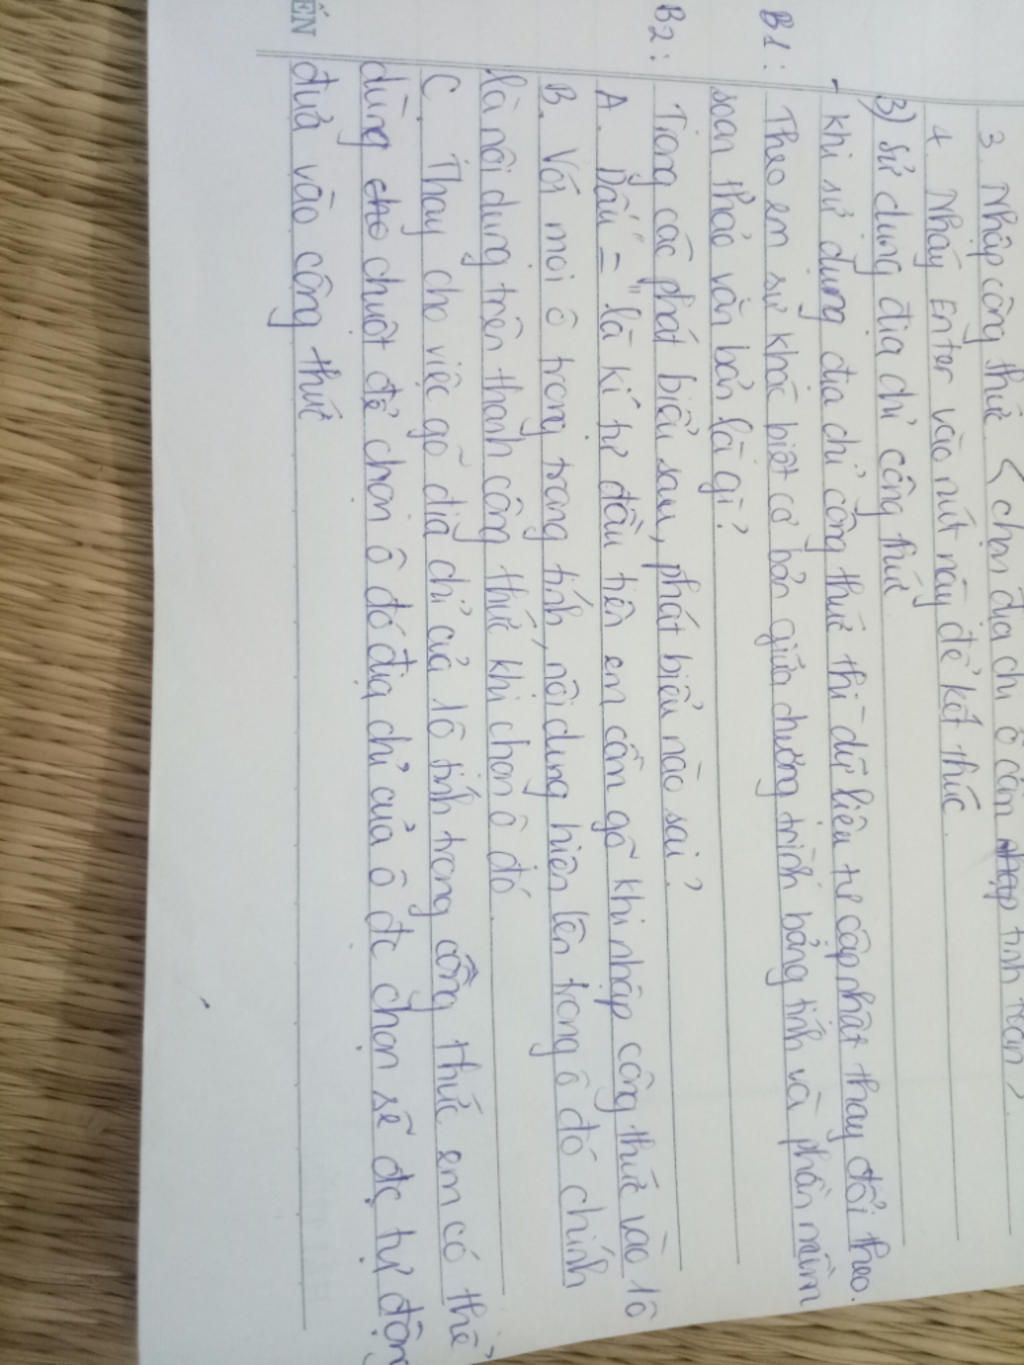 3. Nhập công thức < chọn địa chỉ ô cần nhập tính toán >
4. Nháy Enter vào nút này để kết thúc.
3) sử dụng địa chỉ công thức
- khi sử dụng địa chỉ công thức thì dữ liệu tự cập nhật thay đổi theo.
B1: Theo em sự khác biệt cơ bản giữa chương trình bảng tính và phần mềm
soạn thảo văn bản là gì?
B2: Trong các phát biểu sau, phát biểu nào sai?
A. Dấu "=" là kí tự đầu tiên em cần gõ khi nhập công thức vào 1ô
B. Với mọi ô trong trang tính, nội dung hiện lên trong ô đó chính
là nội dung trên thanh công thức khi chọn ô đó.
C. Thay cho việc gõ địa chỉ của 1ô tính trong công thức em có thể
dùng cho chuột để chọn ô đó địa chỉ của ô đc chọn sẽ đc tự động
đưa vào công thức
ẾN